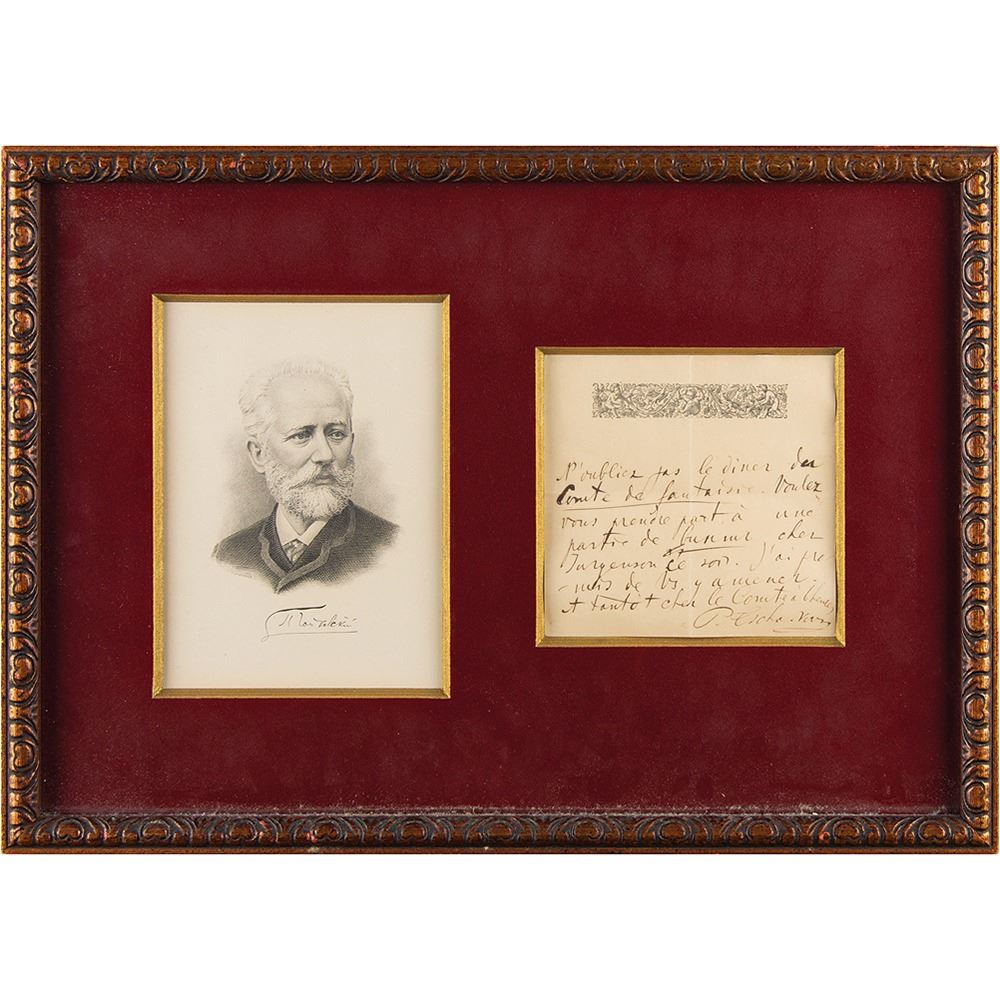 N'oubliez pas le diner du
Comte de fantaisie. Voulez
vous prendre part à une
partie de chez
Jurgenson ce soir. J'ai pro
-mis de Vs y amener.
A tantôt chez le Comte
P. Tscha